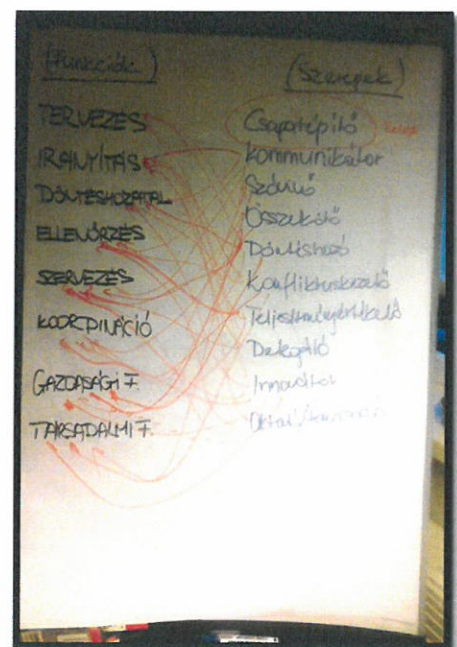 (Funkciók)
TERVEZÉS
IRÁNYÍTÁS
DÖNTÉSHOZATAL
ELLENŐRZÉS
SZERVEZÉS
KOORDINÁCIÓ
GAZDASÁGI F.
TÁRSADALMI F.
(Szerepek)
Csapatépítő
Kommunikátor
Szóvivő
Összekötő
Döntéshozó
Konfliktuskezelő
Teljesítményértékelő
Delegáló
Innovátor